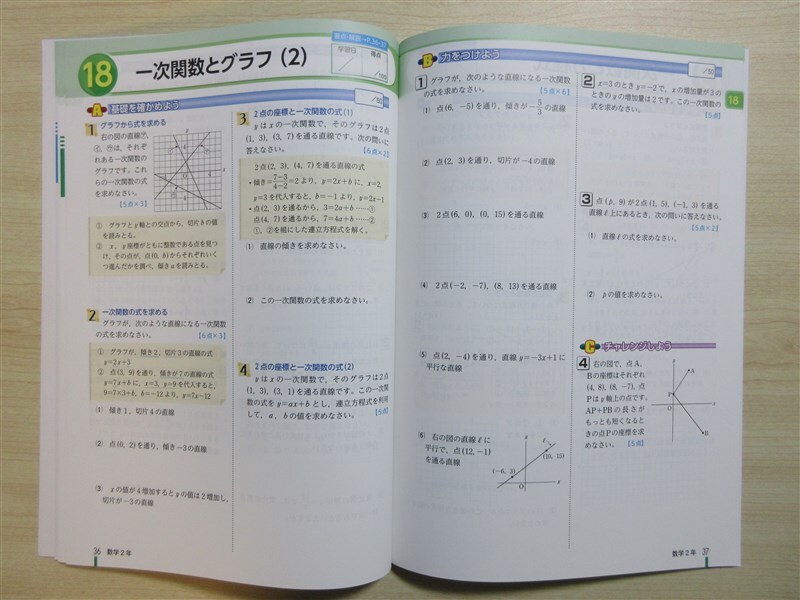 18
一次関数とグラフ (2)
要点・解説→P.36・37
学習日
得点
/100
A 基礎を確かめよう
/50
1 グラフから式を求める
右の図の直線㋐,
㋑, ㋒は, それぞ
れある一次関数の
グラフです。これ
らの一次関数の式
を求めなさい。
【5点×3】
① グラフとy軸との交点から, 切片bの値
を読みとる。
② x, y座標がともに整数である点を見つ
け, その点が, 点(0, b)からそれぞれいく
つ進んだかを調べ, 傾きaを読みとる。
2 一次関数の式を求める
グラフが, 次のような直線になる一次関数
の式を求めなさい。
【6点×3】
① グラフが, 傾き2, 切片3の直線の式
y=2x+3
② 点(3, 9)を通り, 傾きが7の直線の式
y=7x+bに, x=3, y=9を代入すると,
9=7×3+b, b=-12より, y=7x-12
(1) 傾き1, 切片4の直線
(2) 点(0, 2)を通り, 傾き-3の直線
(3) xの値が4増加するとyの値は2増加し,
切片が-3の直線
3 2点の座標と一次関数の式(1)
yはxの一次関数で, そのグラフは2点
(1, 3), (3, 7)を通る直線です。次の問いに
答えなさい。
【6点×2】
2点(2, 3), (4, 7)を通る直線の式
・傾き=7-3/4-2=2より, y=2x+bに, x=2,
y=3を代入すると, b=-1より, y=2x-1
・点(2, 3)を通るから, 3=2a+b ……①
点(4, 7)を通るから, 7=4a+b ……②
①, ②を組にした連立方程式を解く。
(1) 直線の傾きを求めなさい。
(2) この一次関数の式を求めなさい。
4 2点の座標と一次関数の式(2)
yはxの一次関数で, そのグラフは2点
(1, 3), (3, 1)を通る直線です。この一次関
数の式をy=ax+bとし, 連立方程式を利用
して, a, bの値を求めなさい。
【5点】
36 数学2年
B 力をつけよう
/50
1 グラフが, 次のような直線になる一次関数
の式を求めなさい。
【5点×6】
(1) 点(6, -5)を通り, 傾きが-5/3の直線
(2) 点(2, 3)を通り, 切片が-4の直線
(3) 2点(6, 0), (0, 15)を通る直線
(4) 2点(-2, -7), (8, 13)を通る直線
(5) 点(2, -4)を通り, 直線y=-3x+1に
平行な直線
(6) 右の図の直線ℓに
平行で, 点(12, -1)
を通る直線
y
ℓ
(10, 15)
(-6, 3)
O
x
2 x=3のときy=-2で, xの増加量が3の
ときのyの増加量は2です。この一次関数の
式を求めなさい。
【5点】
18
3 点(p, 9)が2点(1, 5), (-1, 3)を通る
直線ℓ上にあるとき, 次の問いに答えなさい。
【5点×2】
(1) 直線ℓの式を求めなさい。
(2) pの値を求めなさい。
C チャレンジしよう
4 右の図で, 点A,
Bの座標はそれぞれ
(4, 8), (8, -7), 点
Pはy軸上の点です。
AP+PBの長さが
もっとも短くなると
きの点Pの座標を求
めなさい。
【5点】
y
A
P
O
x
B
数学2年 37